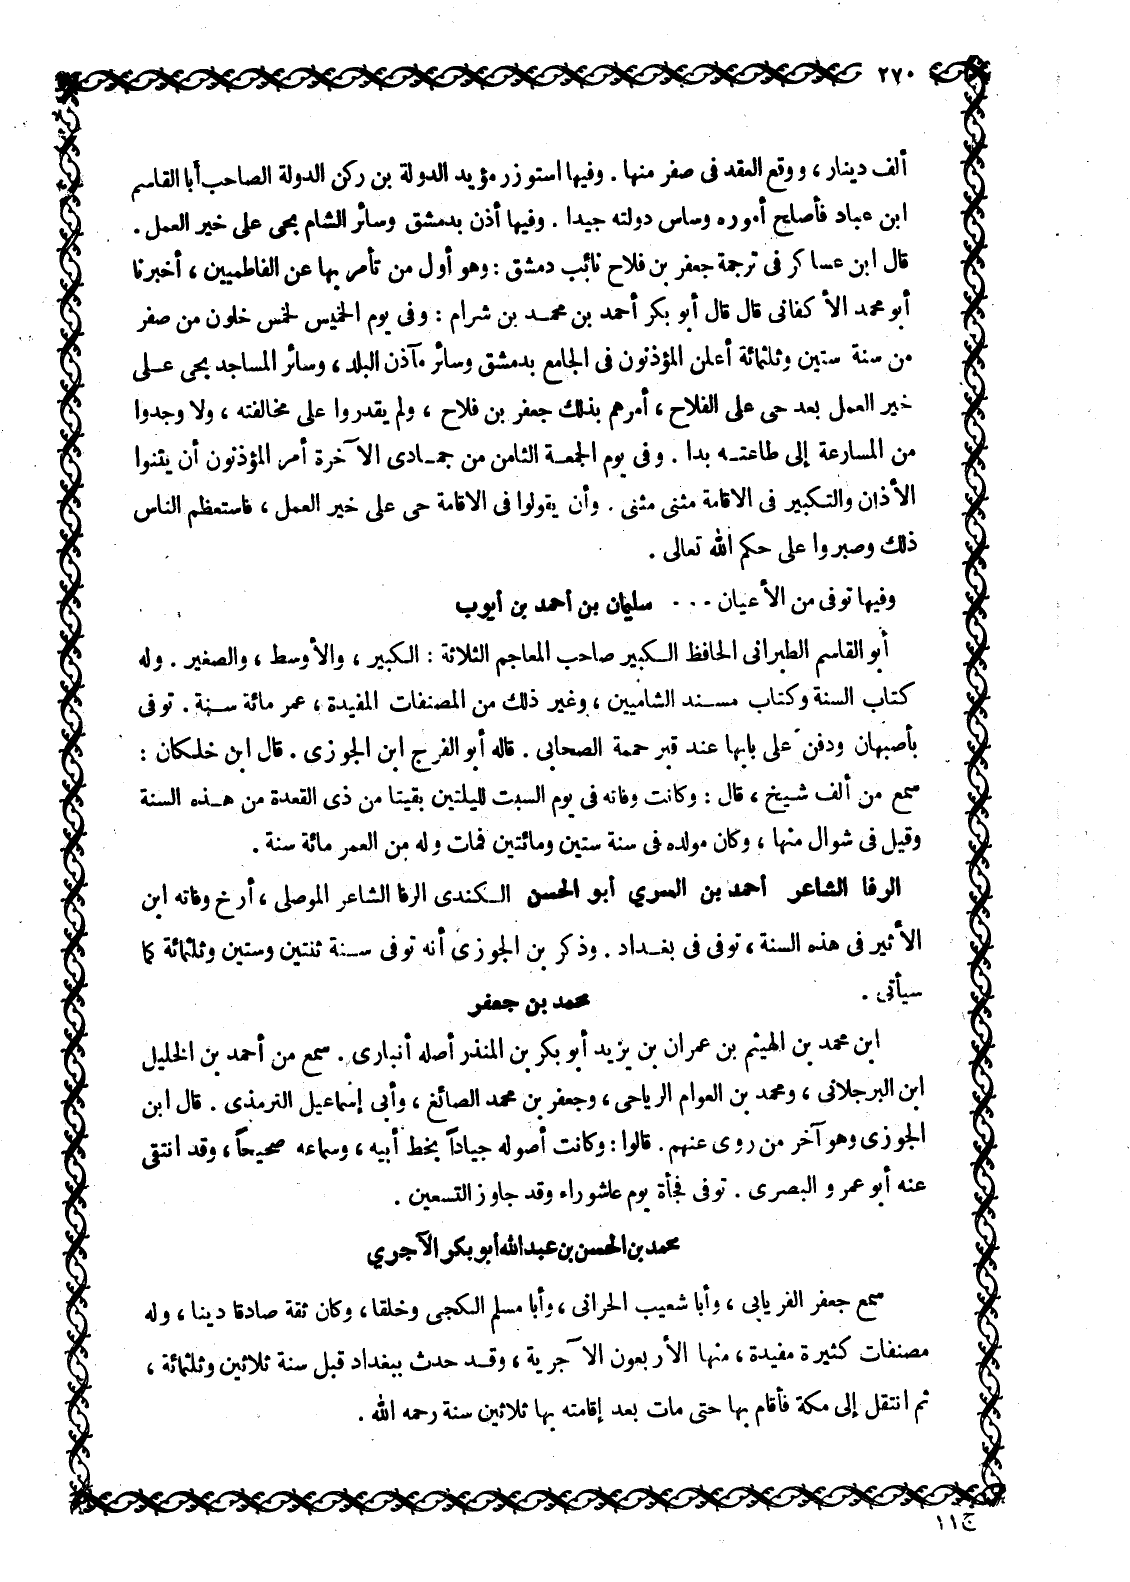 ٢٧٠
ألف دينار، ووقع العقد فى صفر منها. وفيها استوزر مؤيد الدولة بن ركن الدولة الصاحب أبا القاسم
ابن عباد فأصلح أموره وساس دولته جيدا. وفيها أذن بدمشق وسائر الشام بحى على خير العمل.
قال ابن عساكر فى ترجمة جعفر بن فلاح نائب دمشق: وهو أول من تأمر بها عن الفاطميين، أخبرنا
أبو محمد الأكفانى قال قال أبو بكر أحمد بن محمد بن شرام: وفى يوم الخميس لخمس خلون من صفر
من سنة ستين وثلثمائة أعلن المؤذنون فى الجامع بدمشق وسائر مآذن البلد، وسائر المساجد بحى على
خير العمل بعد حى على الفلاح، أمرهم بذلك جعفر بن فلاح، ولم يقدروا على مخالفته، ولا وجدوا
من المسارعة إلى طاعته بدا. وفى يوم الجمعة الثامن من جمادى الآخرة أمر المؤذنون أن يثنوا
الأذان والتكبير فى الاقامة مثنى مثنى. وأن يقولوا فى الاقامة حى على خير العمل، فاستعظم الناس
ذلك وصبروا على حكم الله تعالى.
وفيها توفى من الأعيان ... سليمان بن أحمد بن أيوب
أبو القاسم الطبرانى الحافظ الكبير صاحب المعاجم الثلاثة: الكبير، والأوسط، والصغير. وله
كتاب السنة وكتاب مسند الشاميين، وغير ذلك من المصنفات المفيدة، عمر مائة سنة. توفى
بأصبهان ودفن على بابها عند قبر حممة الصحابى. قاله أبو الفرج ابن الجوزى. قال ابن خلكان:
سمع من ألف شيخ، قال: وكانت وفاته فى يوم السبت لليلتين بقيتا من ذى القعدة من هذه السنة
وقيل فى شوال منها، وكان مولده فى سنة ستين ومائتين فمات وله من العمر مائة سنة.
الرفا الشاعر أحمد بن السري أبو الحسن الكندى الرفا الشاعر الموصلى، أرخ وفاته ابن
الأثير فى هذه السنة، توفى فى بغداد. وذكر بن الجوزى أنه توفى سنة ثنتين وستين وثلثمائة كما
سيأتى.
محمد بن جعفر
ابن محمد بن الهيثم بن عمران بن يزيد أبو بكر بن المنذر أصله أنبارى. سمع من أحمد بن الخليل
ابن البرجلانى، ومحمد بن العوام الرياحى، وجعفر بن محمد الصائغ، وأبى إسماعيل الترمذى. قال ابن
الجوزى وهو آخر من روى عنهم. قالوا: وكانت أصوله جياداً بخط أبيه، وسماعه صحيحاً، وقد انتقى
عنه أبو عمرو البصرى. توفى فجأة يوم عاشوراء وقد جاوز التسعين.
محمد بن الحسن بن عبد الله أبو بكر الآجري
سمع جعفر الفريابى، وأبا شعيب الحرانى، وأبا مسلم الكجى وخلقا، وكان ثقة صادقا دينا، وله
مصنفات كثيرة مفيدة، منها الأربعون الآجرية، وقد حدث ببغداد قبل سنة ثلاثين وثلثمائة،
ثم انتقل إلى مكة فأقام بها حتى مات بعد إقامته بها ثلاثين سنة رحمه الله.
ج ١١